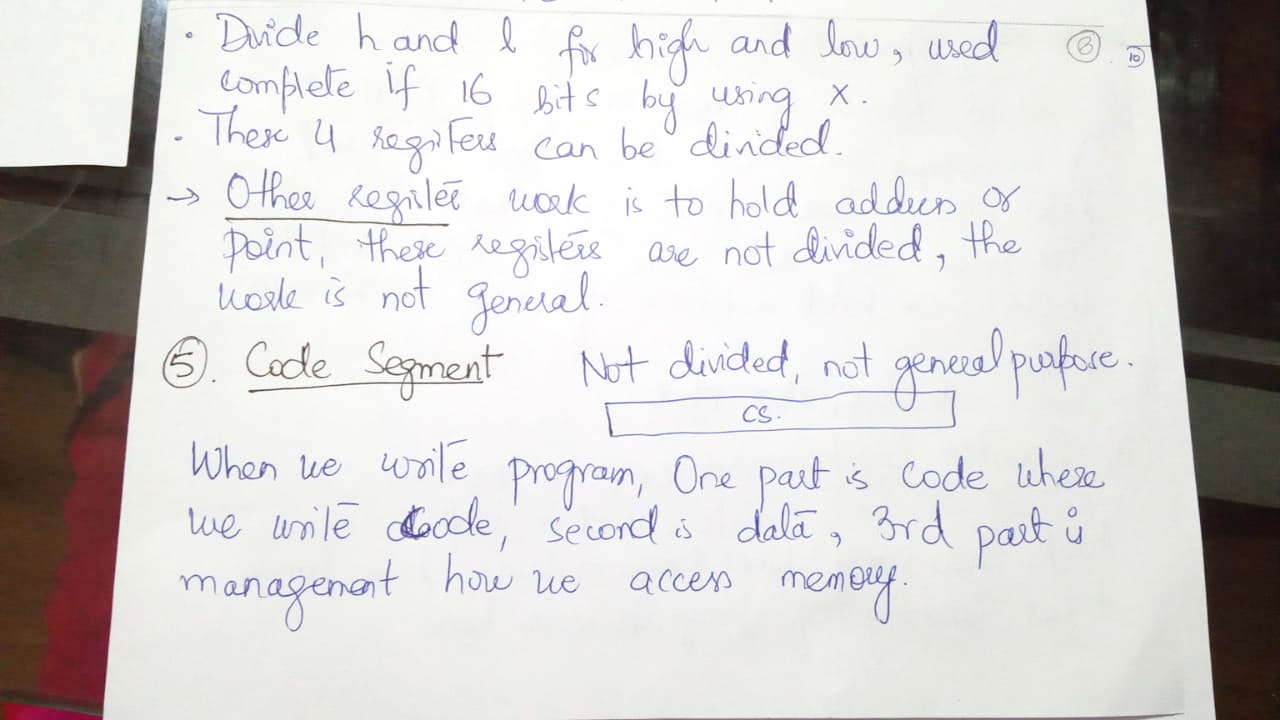 • Divide h and l for high and low, used ⑧ ⑩
complete if 16 bits by using x.
• These 4 registers can be divided.
→ Other register work is to hold address or
point, these registers are not divided, the
work is not general.
⑤. Code Segment Not divided, not general purpose.
CS.
When we write program, One part is code where
we write code, second is data, 3rd part is
management how we access memory.